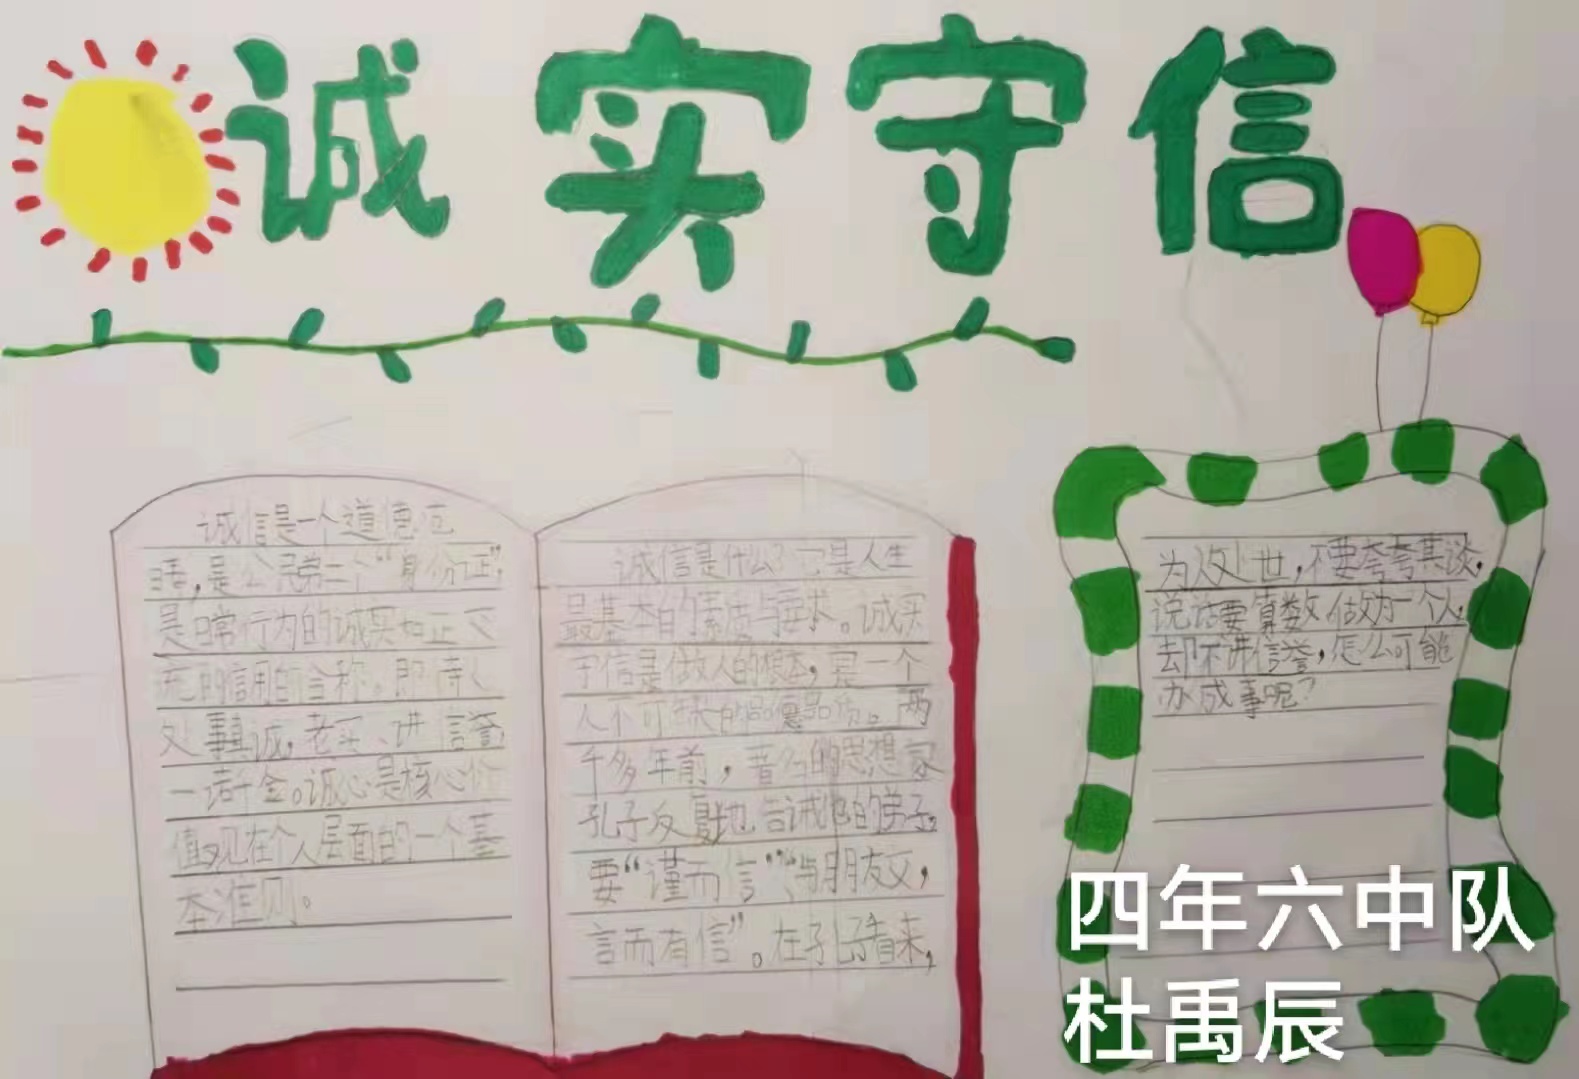 诚实守信
诚信是一个道德范
畴,是公民第二个“身份证”,
是日常行为的诚实和正式
流的信用的合称。即待人
处事真诚,老实、讲信誉,
一诺千金。诚心是核心价
值观在个人层面的一个基
本准则。
诚信是什么?它是人生
最基本的素质与要求。诚实
守信是做人的根本,是一个
人不可缺的品德品质。两
千多年前,著名的思想家
孔子反复地告诫他的弟子,
要“谨而信”“与朋友交,
言而有信”。在孔子看来,
为人处世,不要夸夸其谈,
说话要算数,做为一个人,
却不讲信誉,怎么可能
办成事呢?
四年六中队
杜禹辰